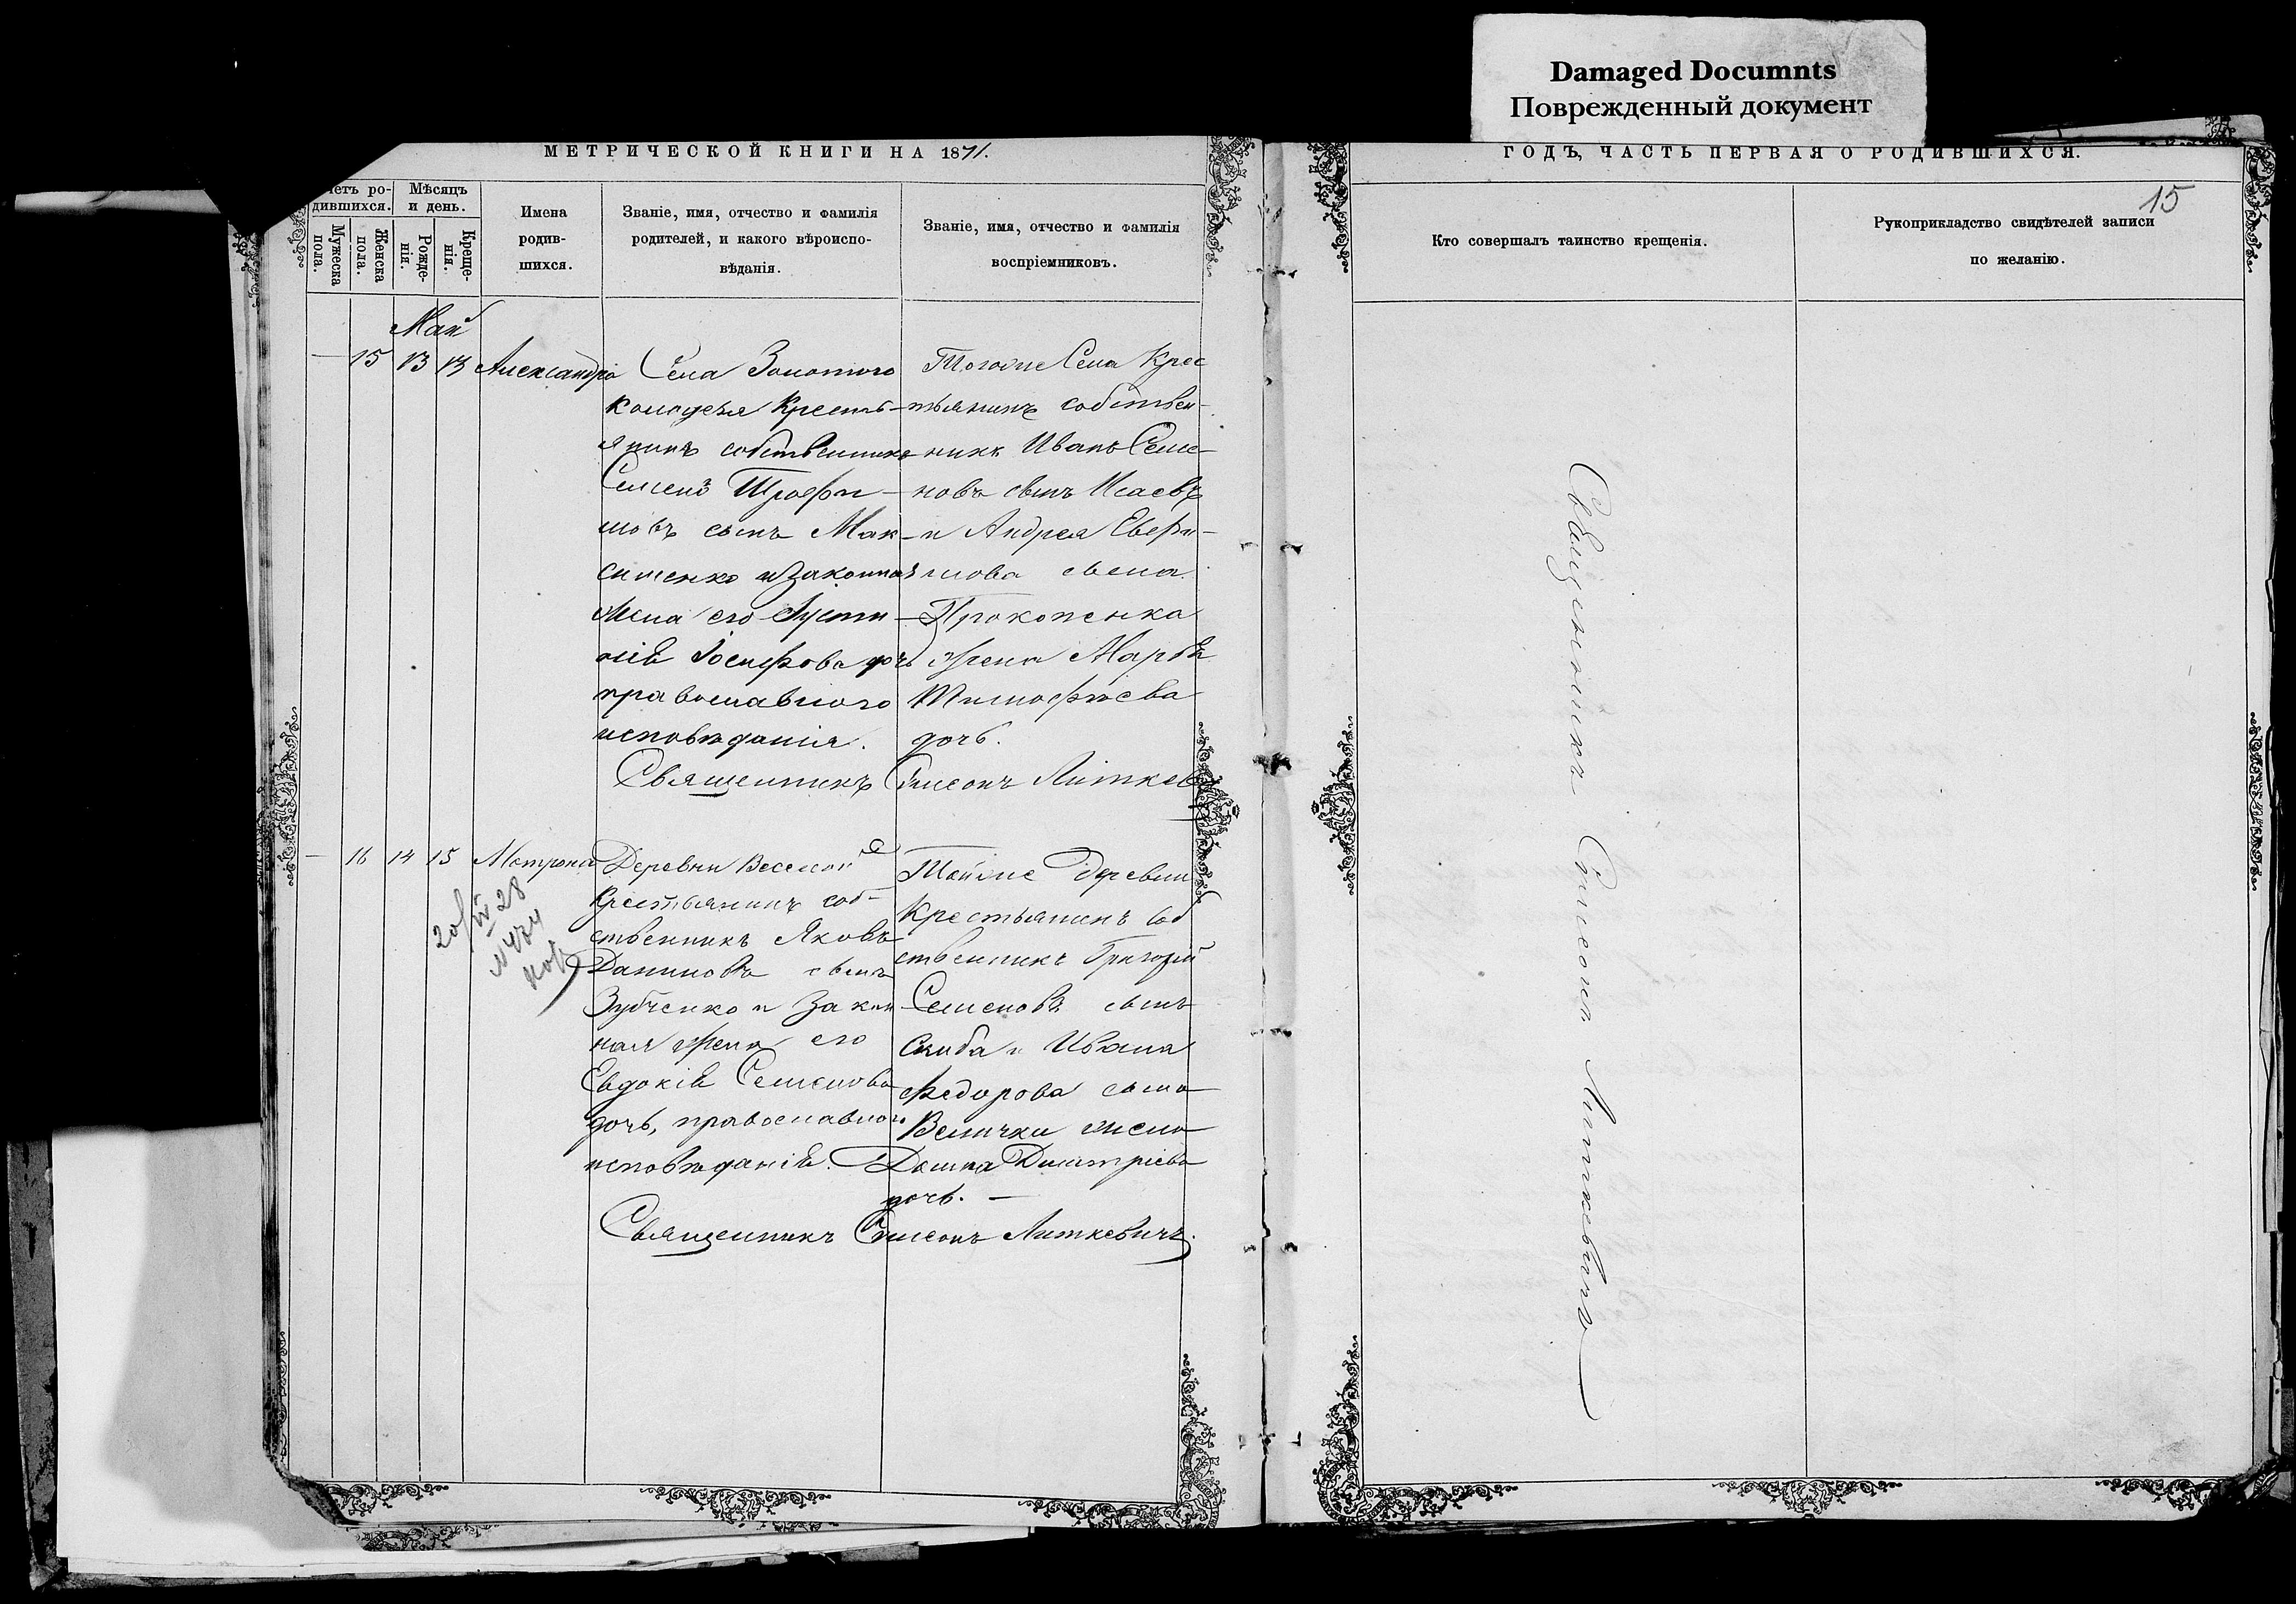 Damaged Documnts
Поврежденный документ
МЕТРИЧЕСКОЙ КНИГИ НА 1871.
ГОДЪ, ЧАСТЬ ПЕРВАЯ О РОДИВШИХСЯ.
15
четъ ро-
дившихся.
Мужеска
пола.
Женска
пола.
Мѣсяцъ
и день.
Рожде-
нія.
Креще-
нія.
Имена
родив-
шихся.
Званіе, имя, отчество и фамилія
родителей, и какого вѣроиспо-
вѣданія.
Званіе, имя, отчество и фамилія
воспріемниковъ.
Кто совершалъ таинство крещенія.
Рукоприкладство свидѣтелей записи
по желанію.
Май
— 15 13 13 Александра
Села Золотого
Колодезя Кресть-
янинъ собственникъ
Семенъ Трофи-
мовъ сынъ Мак-
сименко и законная
жена его Іусти-
нія Іосифова дочь
православного
исповѣданія.
Тогоже Села Крес
тьянинъ собствен-
никъ Иванъ Семе-
новъ сынъ Исаевъ
и Андрея Евфи-
мова сына
Прокопенка
жена Марѳа
Тимофѣева
дочь.
Священникъ Симеонъ Литкев
— 16 14 15 Матрона
20/IV 28
N 474
Деревни Веселой
Крестьянинъ соб-
ственникъ Яковъ
Даниловъ сынъ
Зубченко и закон
ная жена его
Евдокія Семенова
дочь, православного
исповѣданія.
Тойже Деревни
Крестьянинъ соб
ственникъ Григорій
Семеновъ сынъ
Скиба и Ивана
Федорова сына
Велички жена
Домна Димитріева
дочь. —
Священникъ Симеонъ Литкевичъ.
Священникъ Симеонъ Литкевичъ